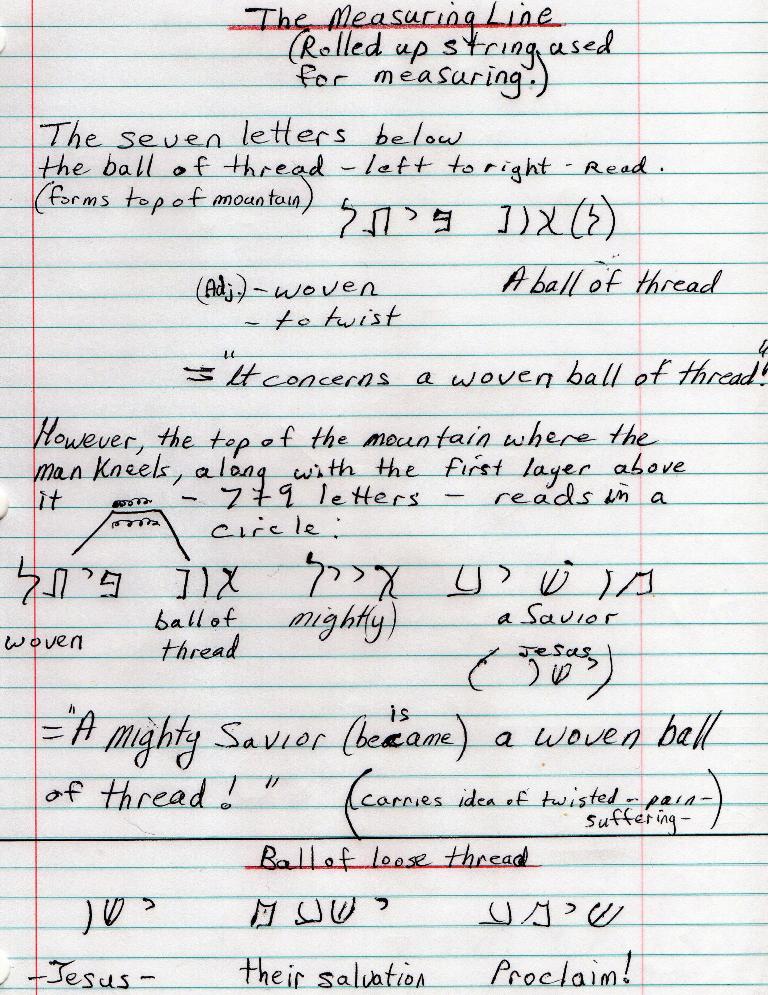 The Measuring Line
(Rolled up string used
for measuring.)
The seven letters below
the ball of thread - left to right - Read.
(forms top of mountain)
(Adj.) - woven A ball of thread
- to twist
= "It concerns a woven ball of thread."
However, the top of the mountain where the
man Kneels, along with the first layer above
it - 7+9 letters - reads in a
circle:
מושיע אייל
woven ball of thread might(y) a Savior
(Jesus ישו)
= "A mighty Savior (became) is a woven ball
of thread!" (carries idea of twisted - pain -
suffering -)
Ball of loose thread
ישו
-Jesus- their salvation Proclaim!